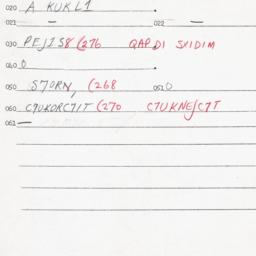 020 A KUKL1 .
021 — 022 —
030 PEJIS8 (276 QAPDI SXIDIM
040 0 .
050 S7ORN, (268 051 0
060 C7UKORC7IT (270 C7UKNEJC7T
061 —